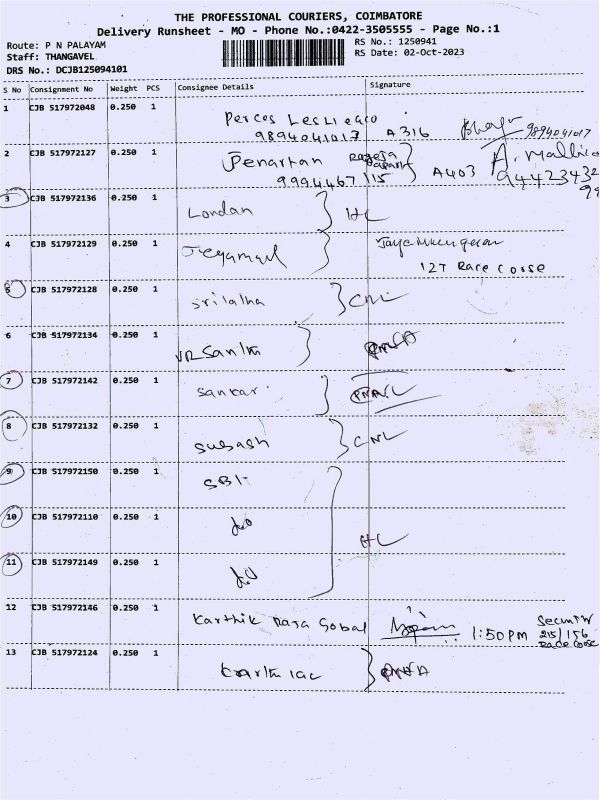 THE PROFESSIONAL COURIERS, COIMBATORE
Delivery Runsheet - MO - Phone No.:0422-3505555 - Page No.:1
Route: P N PALAYAM
RS No.: 1250941
Staff: THANGAVEL
RS Date: 02-Oct-2023
DRS No.: DCJB125094101
S No Consignment No Weight PCS Consignee Details Signature
1 CJB 517972048 0.250 1
9894041017 A 316 9894041017
2 CJB 517972127 0.250 1 Jenarthan
A403
3 CJB 517972136 0.250 1 London HC
4 CJB 517972129 0.250 1
127 Race Corse
5 CJB 517972128 0.250 1 Srilatha CNL
6 CJB 517972134 0.250 1
7 CJB 517972142 0.250 1 Sankar
8 CJB 517972132 0.250 1 Subash CNL
9 CJB 517972150 0.250 1 SBI
10 CJB 517972110 0.250 1 do
HC
11 CJB 517972149 0.250 1 do
12 CJB 517972146 0.250 1 Karthik Raja Gobal 1:50PM
215/156
Race Corse
13 CJB 517972124 0.250 1